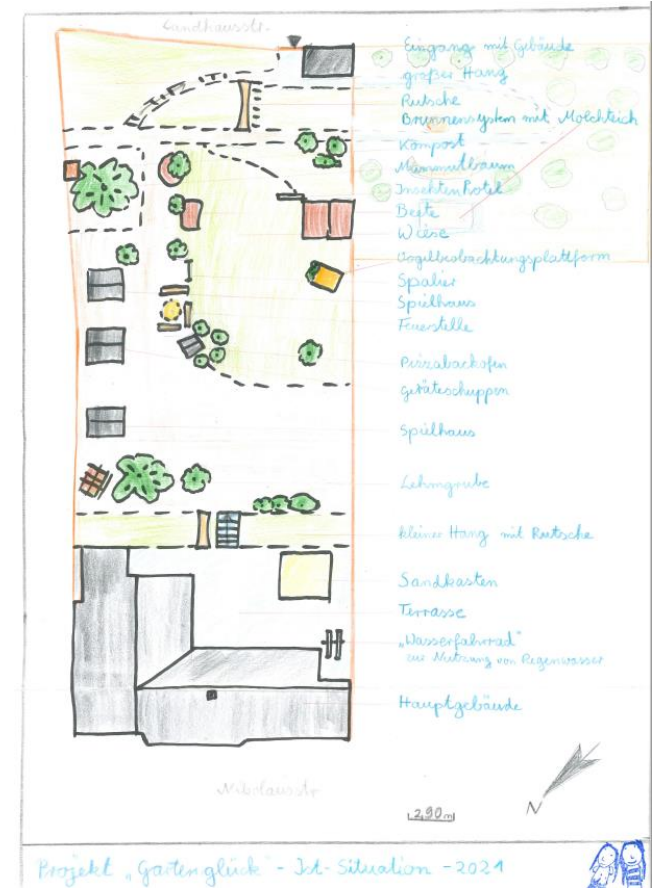 Landhausstr.
Eingang mit Gebäude
großer Hang
Rutsche
Brunnensystem mit Molchteich
Kompost
Mammutbaum
Insektenhotel
Beete
Wiese
Vogelbeobachtungsplattform
Spalier
Spielhaus
Feuerstelle
Pizzabackofen
Geräteschuppen
Spielhaus
Lehmgrube
kleiner Hang mit Rutsche
Sandkasten
Terrasse
„Wasserfahrrad"
zur Nutzung von Regenwasser
Hauptgebäude
Nikolausstr
2,90m
N
Projekt „Gartenglück" - Ist-Situation - 2021